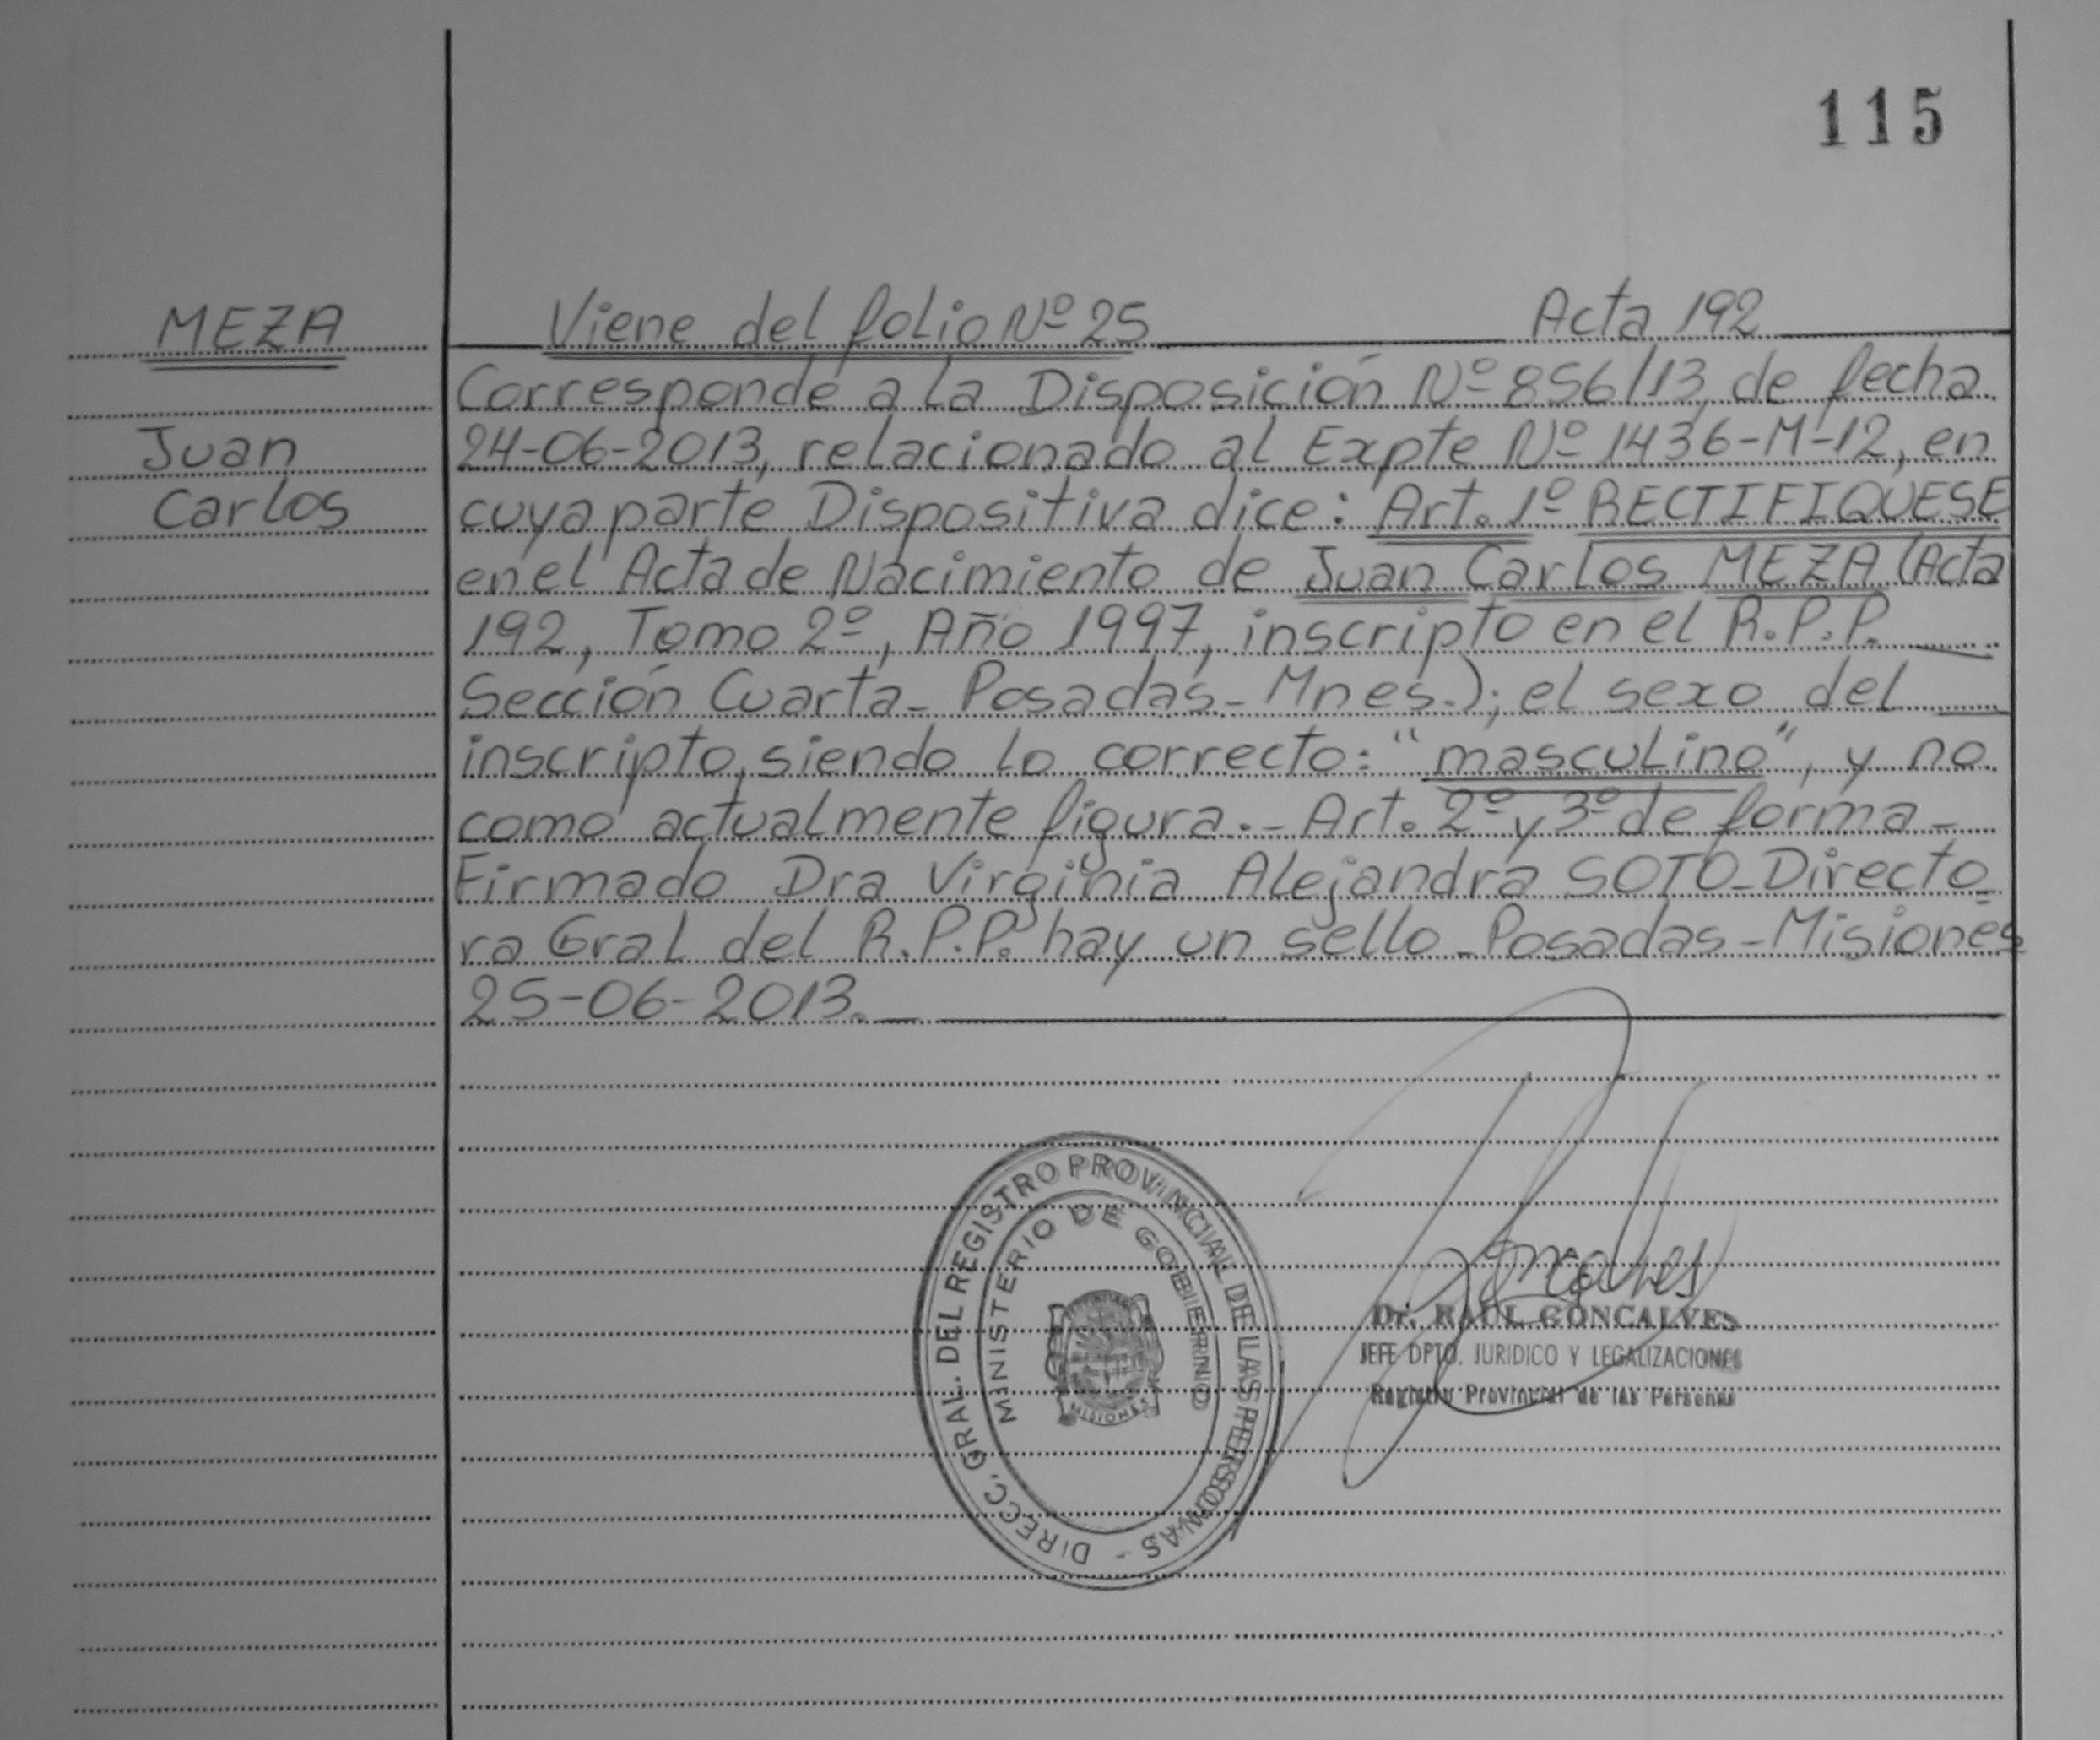 115
MEZA
Juan
Carlos
Viene del folio Nº 25 Acta 192
Corresponde a la Disposición Nº 856/13, de fecha
24-06-2013, relacionado al Expte Nº 1436-M-12, en
cuya parte Dispositiva dice: Art. 1º RECTIFIQUESE
en el Acta de Nacimiento de Juan Carlos MEZA (Acta
192, Tomo 2º, Año 1997, inscripto en el R.P.P.
Sección Cuarta_ Posadas_ Mnes.); el sexo del
inscripto, siendo lo correcto: "masculino", y no
como actualmente figura._ Art. 2º y 3º de forma_
Firmado Dra Virginia Alejandra SOTO_Directo_
ra Gral del R.P.P. hay un sello_Posadas_Misiones
25-06-2013._
DIRECC. GRAL. DEL REGISTRO PROVINCIAL DE LAS PERSONAS -
MINISTERIO DE GOBIERNO
MISIONES
Goncalves
Dr. RAUL GONCALVES
JEFE DPTO. JURIDICO Y LEGALIZACIONES
Registro Provincial de las Personas